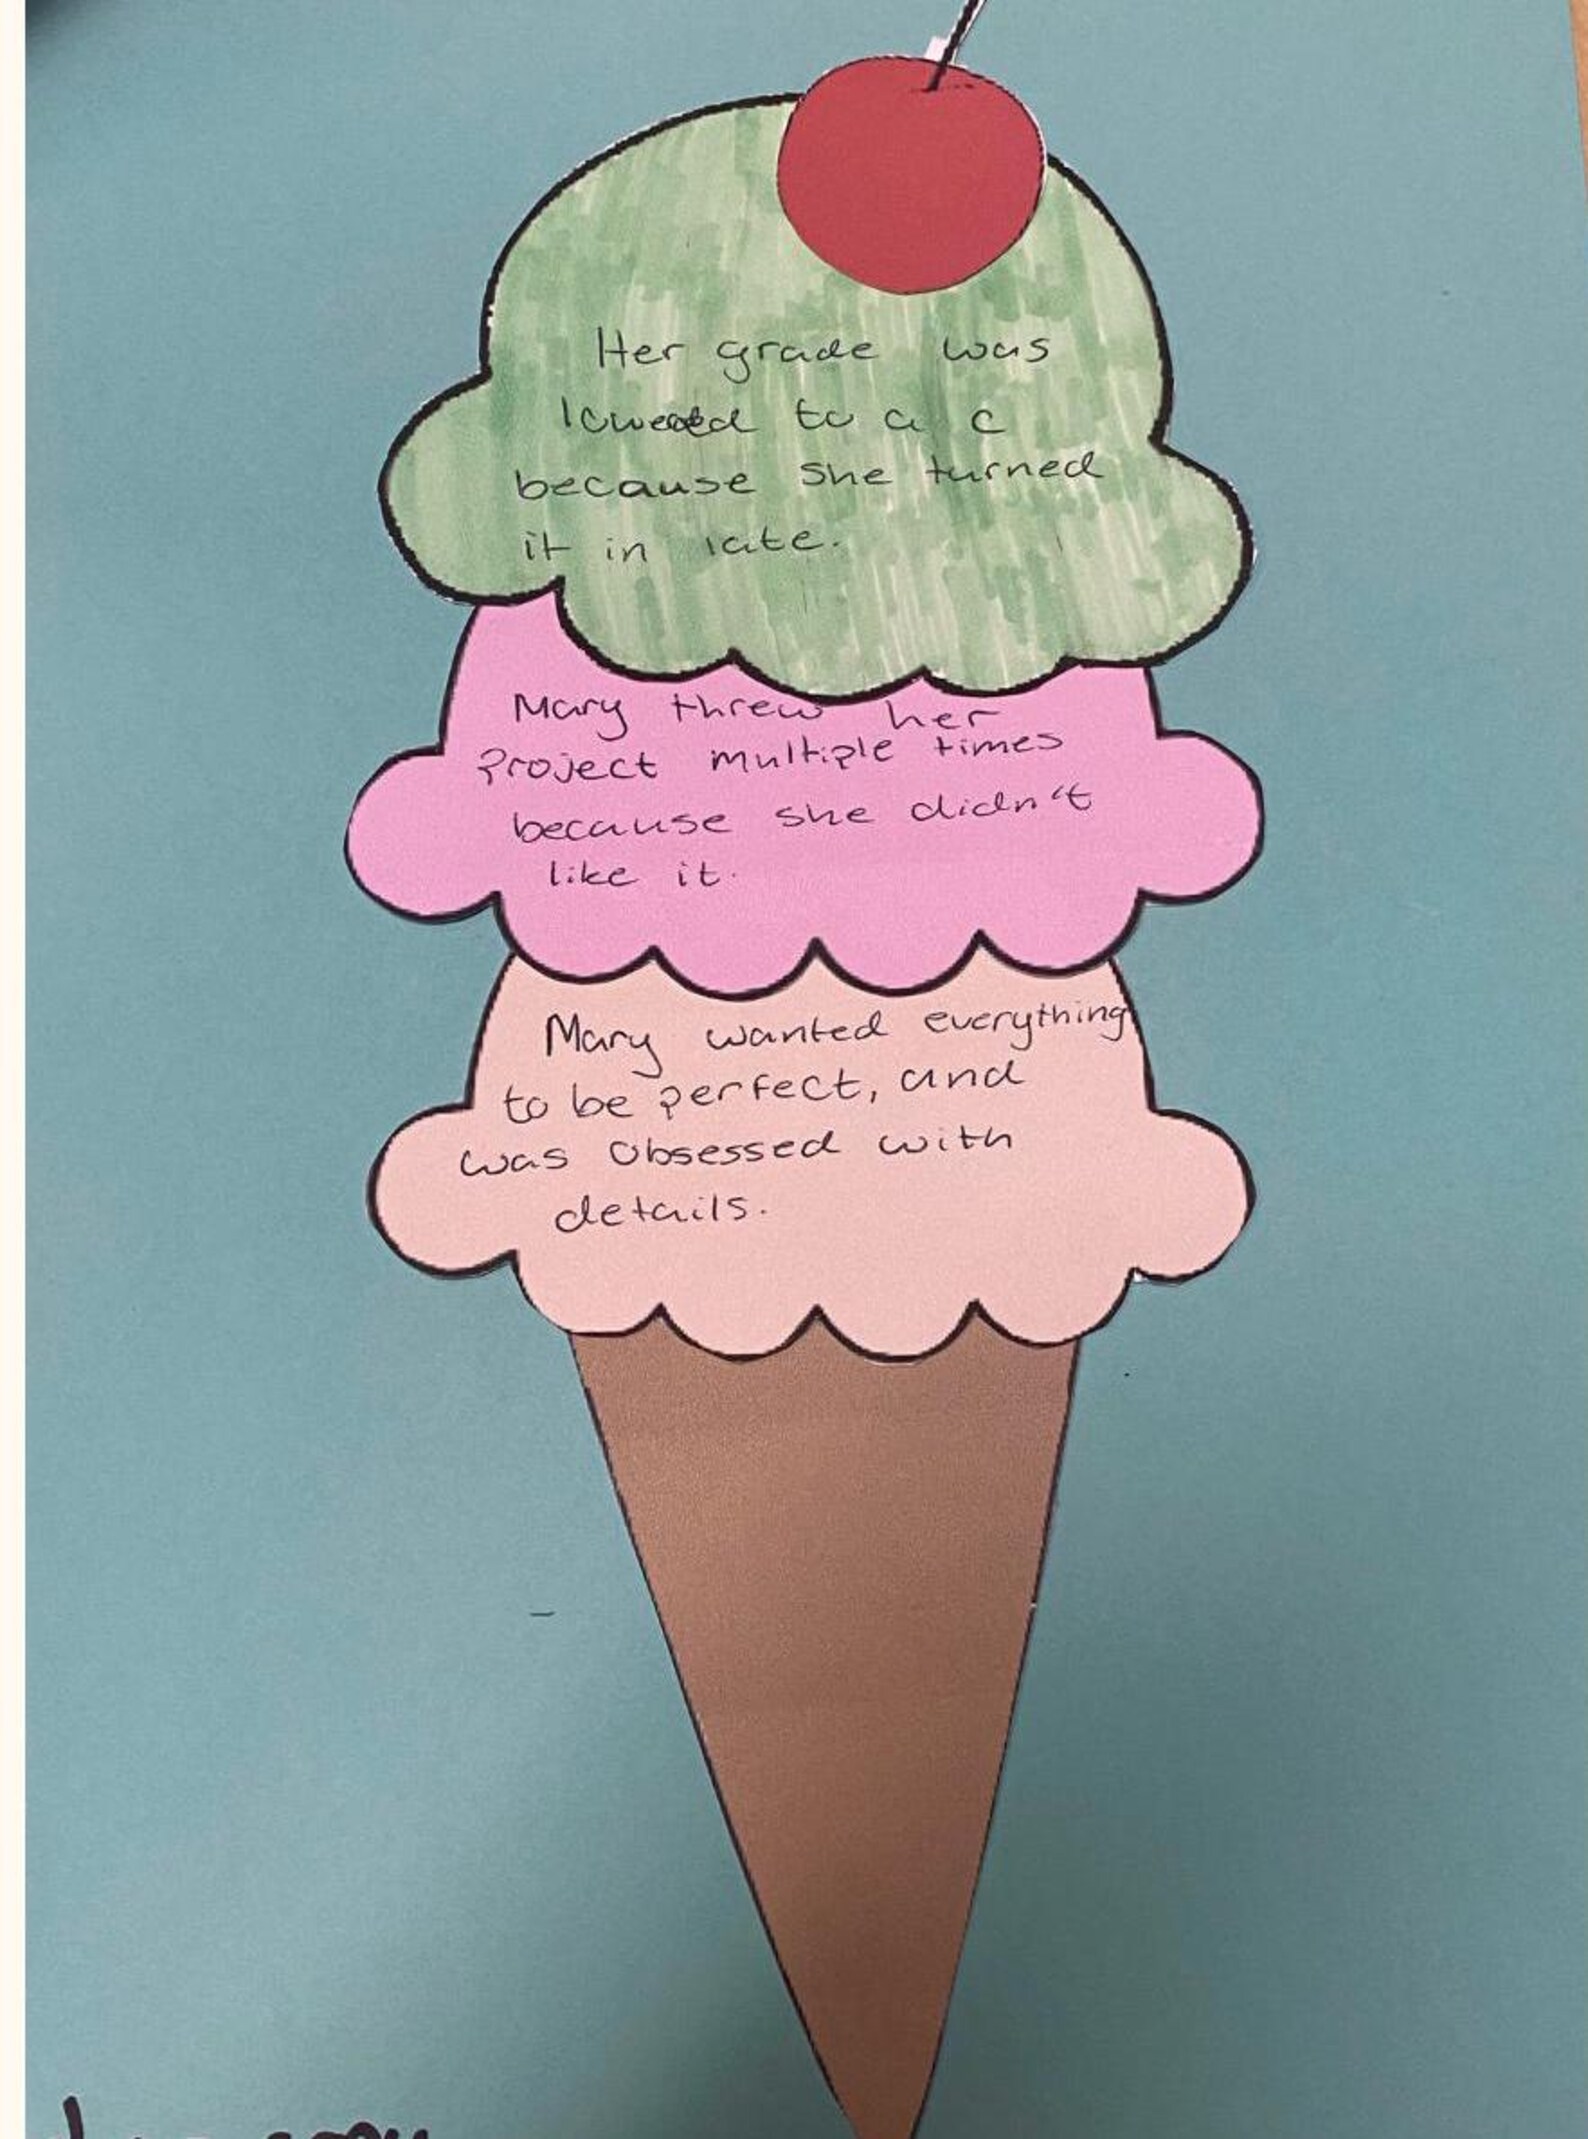 Her grade was
lowered to a c
because she turned
it in late.
Mary threw her
project multiple times
because she didn't
like it.
Mary wanted everything
to be perfect, and
was obsessed with
details.